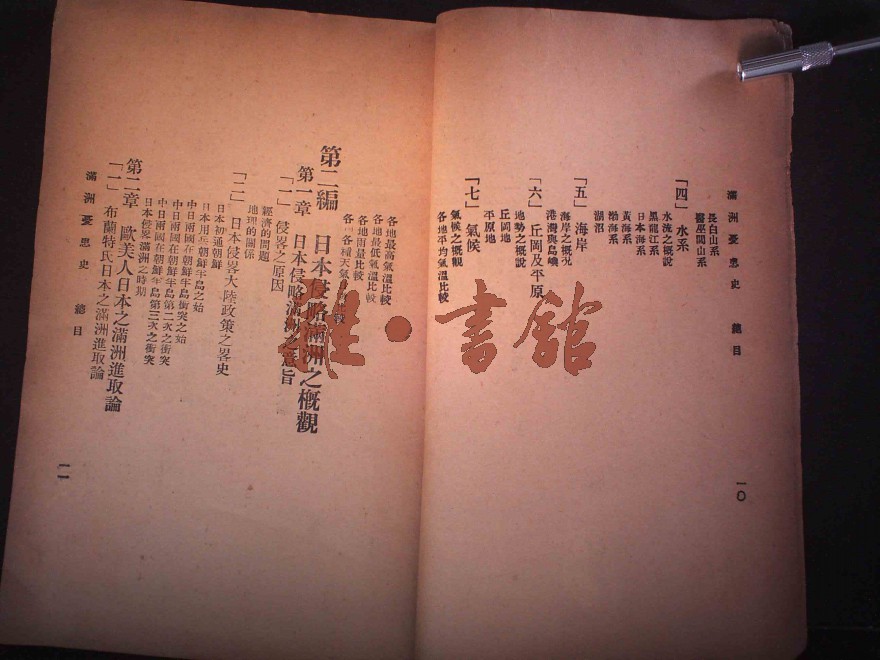 滿洲憂患史 總目
一〇
長白山系
醫巫閭山系
「四」水系
水流之概說
黑龍江系
日本海系
黃海系
渤海系
湖沼
「五」海岸
海岸之概況
港灣與島嶼
「六」丘岡及平原
地勢之概說
丘岡地
平原地
「七」氣候
氣候之概觀
各地平均氣溫比較
各地最高氣溫比較
各地最低氣溫比較
各地雨量比較
各地各種天氣比較
第二編 日本侵略滿洲之概觀
第一章 日本侵略滿洲之意旨
「一」侵畧之原因
經濟的問題
地理的關係
「二」日本侵畧大陸政策之畧史
日本初通朝鮮
日本用兵朝鮮半島之始
中日兩國在朝鮮半島衝突之始
中日兩國在朝鮮半島第二次之衝突
中日兩國在朝鮮半島第三次之衝突
日本侵畧滿洲之時期
第二章 歐美人日本之滿洲進取論
「一」布蘭特氏日本之滿洲進取論
滿洲憂患史 總目
一一
雅·書館